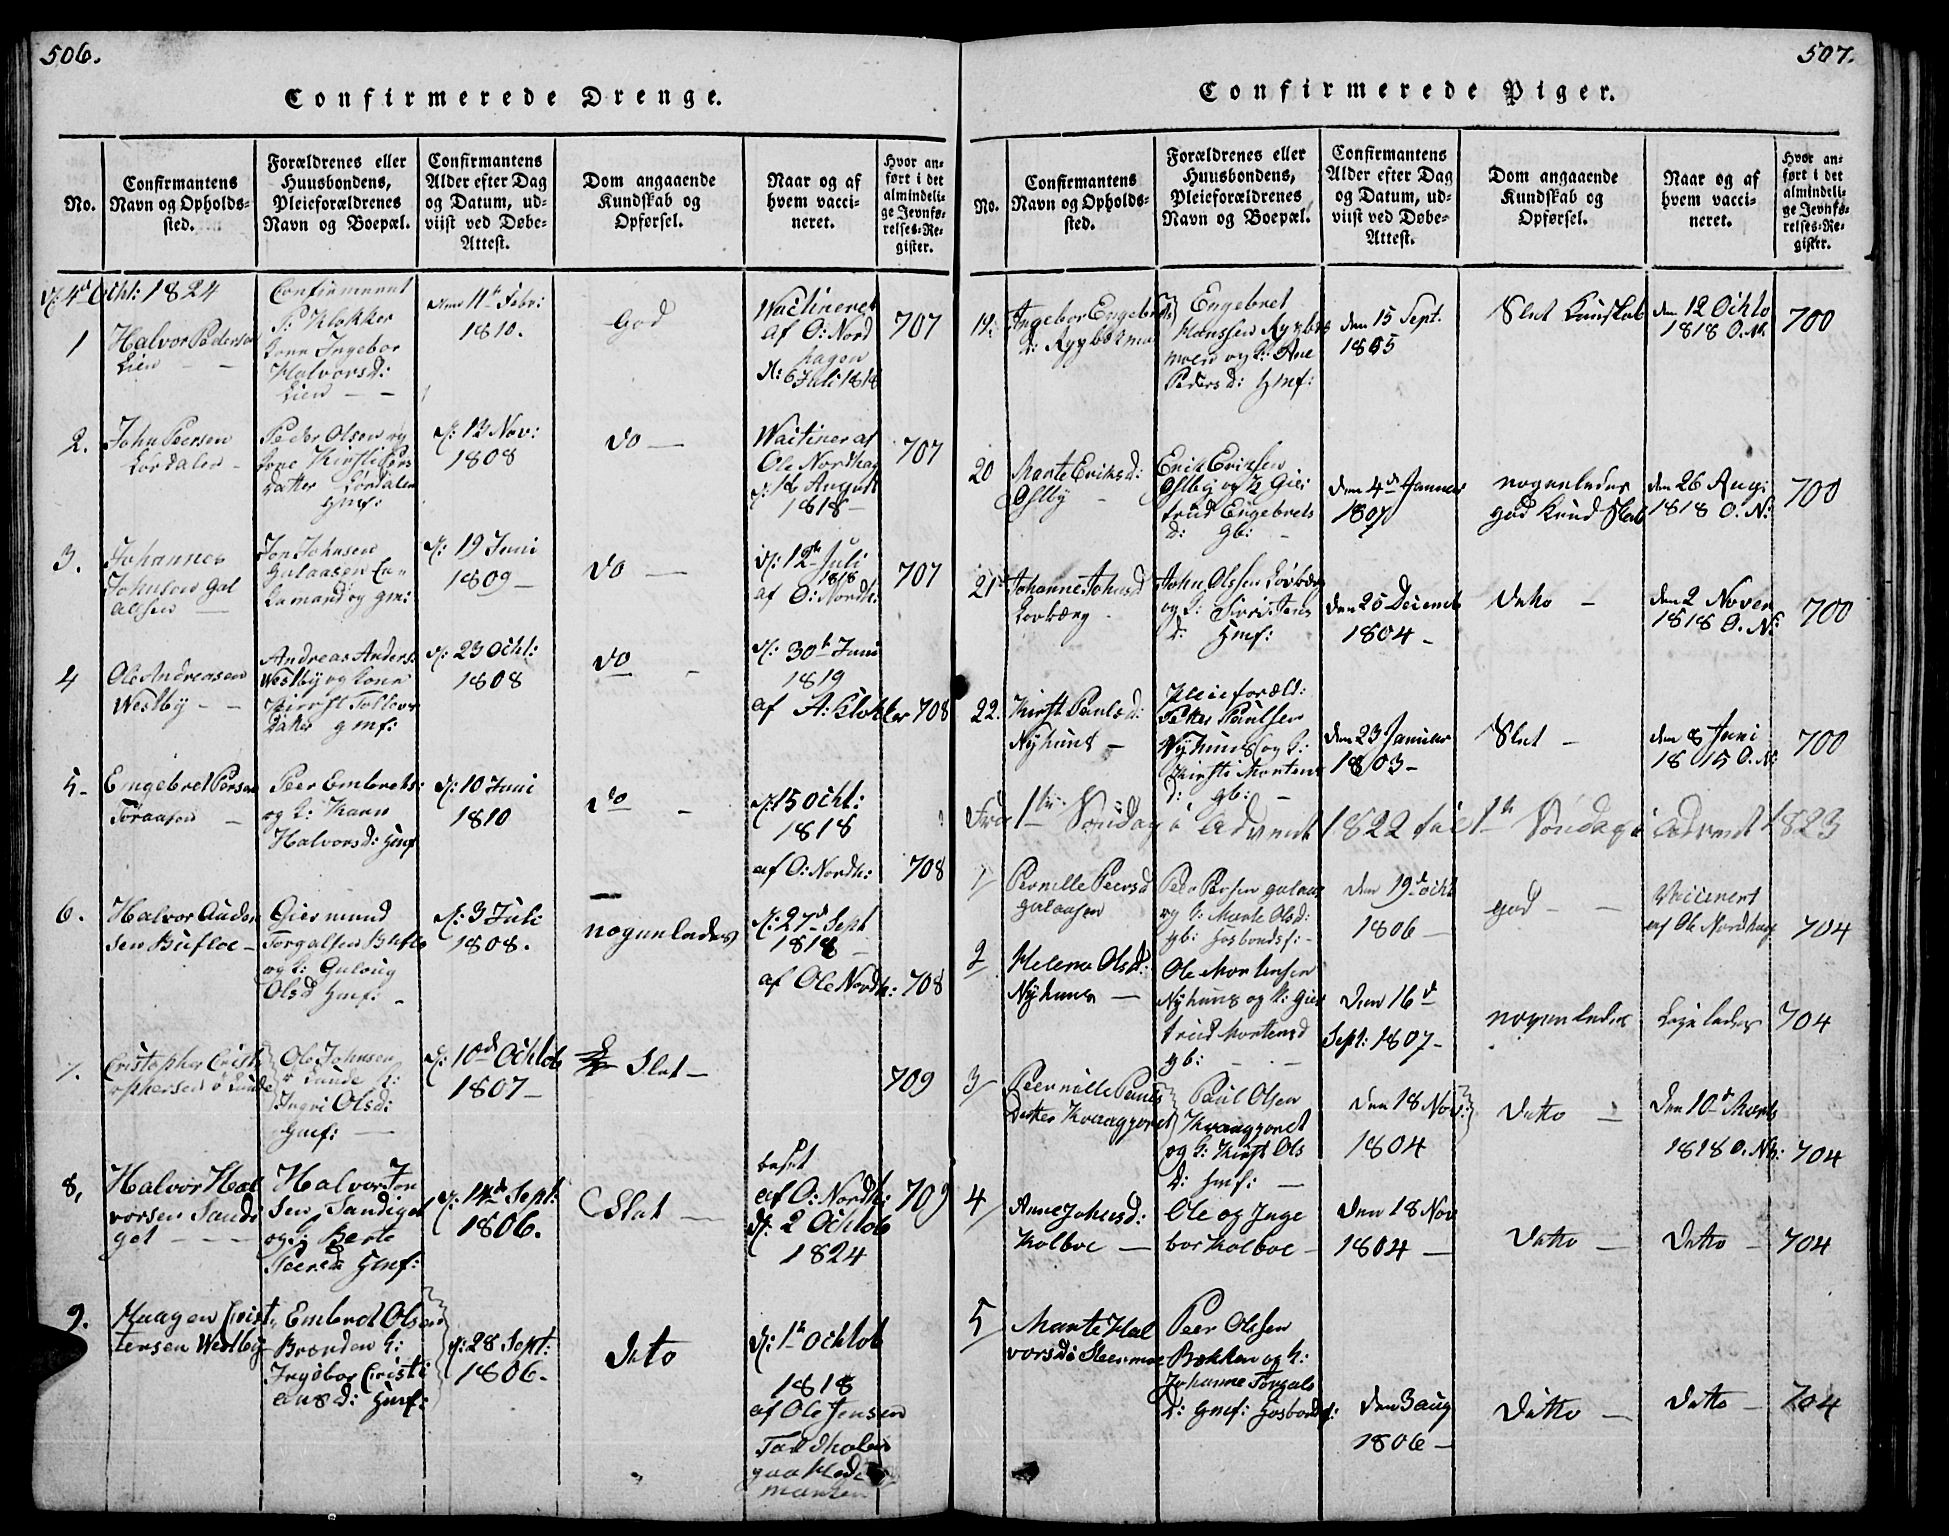 506.
Confirmerede Drenge.
No.
Confirmantens
Navn og Opholds-
sted.
Forældrenes eller
Huusbondens,
Pleieforældrenes
Navn og Boepæl.
Confirmantens
Alder efter Dag
og Datum, ud-
viist ved Døbe-
Attest.
Dom angaaende
Kundskab og
Opførsel.
Naar og af
hvem vacci-
neret.
Hvor an-
ført i det
almindeli-
ge Jevnfø-
relses-Re-
gister.
d: 4d Octbl: 1824
1
Halvor Pederson
Lien
Confirmerent
P: Klokker
Kone Ingebor
Halvorsd:
Lien
den 11t Febr:
1810.
God
Wactineret
af O: Nord
hagen
d: 6 Juli 1818
707
2.
John Peersen
Lordalen
Peder Olsen og
Kone Kirsti Pers
Datter Lordalen
Gmf:
d: 13 Nov:
1808
do
Wactiner af
Ole Nordhag
d: 12 August
1818
707
3.
Johannes
Johnsen Gal
aasen
Jon Johnsen
Galaasen
og gm:
d: 19 Juni
1809
do
d: 12te Juli
1818
af O: Nordh:
707
4
Ole Andreasen
Westby
Andreas Anders:
Westby og Kone
Kirsti Tollevs
Datter gmf:
d: 23 Octl:
1808
do
d: 30t Juni
1819
af A: Klokker
708
5
Emgebret Persen
Toraasen
Peer Embrets:
og K: Karn
Halvorsd: Gmf
d: 10 Juni
1810
do
d: 15 Octl:
1818
af O: Nordh:
708
6.
Halvor Auden
sen Bufloe
Giermund
Torgalsen Bufl
og K: Gulaug
Olsd Gmf:
d: 3 Juli
1808.
nogenledes
d: 27d Sept
1818
af Ole Nordh:
708
7.
Cristopher Crist
ophersen ø Lunde
Ole Johnsen
ø Lunde K:
Ingri Olsd:
Gmf:
d: 10de Octob
1807
Slet
709
8.
Halvor Hal
vorsen Sandi
get
Halvor Jon
sen Sandiget
og K: Berte
Peersd Gmf:
d: 14d Sept:
1806.
Slet
af O: Nordh:
d: 2 Octob
1824
709
9.
Haagen Crist
tensen Westby
Embret Olsen
Brænden K:
Ingebor Cristi
ansd: Gmf:
d: 28 Sept:
1806.
deto
d: 1t Octob
1818
af Ole Jensen
507.
Confirmerede Piger.
No.
Confirmantens
Navn og Opholds-
sted.
Forældrenes eller
Huusbondens,
Pleieforældrenes
Navn og Boepæl.
Confirmantens
Alder efter Dag
og Datum, ud-
viist ved Døbe-
Attest.
Dom angaaende
Kundskab og
Opførsel.
Naar og af
hvem vacci-
neret.
Hvor an-
ført i det
almindeli-
ge Jevnfø-
relses-Re-
gister.
19.
Ingebor Engebrets
d: Rygbekmo
Engebret
Hanssen Rygbek
moen og K: Ane
Pedersd: Gmf:
den 15 Sept.
1805
Slet Kunskab
den 12 Octo
1818 O. N.
700
20
Marte Eriksd:
Østby
Erik Eriksen
Østby og K Gier
trud Engebrets
d: gb:
den 4de Januar
1807
nogenledes
god Kundskab
den 26 Aug:
1818 O. N:
700
21
Johanne Johnsd
Lovberg
John Olssen Lovberg
og K: Siri Jens
d: Gmf:
den 25 Decemb
1804
detto
den 2 Novem
1818 O. N:
700
22.
Kirst Paulsd:
Nyhuus
Pleieforæld:
Petter Paulsen
Nyhuus og K:
Kirsti Mortens
d: gb:
den 23 Januar
1803
Slet
den 8 Juni
1815 O. N:
700
Fra 1te Søndag i Advent 1822 til 1te Søndag i Advent 1823
1
Pernille Peersd
Galaasen
Peer Persen Galaas
og K: Marte Olsd:
gb: Hosbondsf:
den 19de Octb
1806
god
Vaccinert
af Ole Nordhag
704
2
Helena Olsd:
Nyhuus
Ole Mortensen
Nyhuus og K: Gier
trud Mortensd
gb:
den 16d
Sept: 1807
nogenledes
Ligeledes
704
3
Peernille Pauls
Datter Kvanggoret
Paul Olsen
Kvanggoret
og K: Kirst Ols
d: Gmf:
den 18 Nov:
1804
detto
den 10d Marts
1818 O. N:
704
4
Anne Johnsd:
Kolboe
Ole og Inge
bor Kolboe
den 18 Nov
1804
detto
detto
704
5
Marte Hal
vorsd:
Peer Olssen
Bekken og K:
Johanne Torgals
d: Gmf: Hosbondsf:
den 3 aug
1806
detto
detto
704